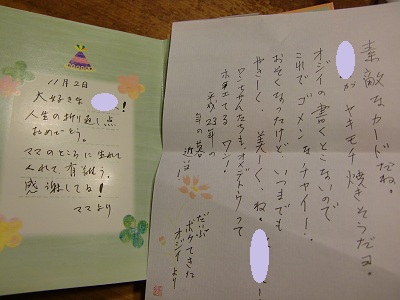 11月2日
大好きな !
人生の折り返し点
おめでとう。
ママのところに生れて
くれて有難う。
感謝してる!
ママより
素敵なカードだね。
がヤキモチ焼きそうだヨ。
オジイの書くとこないので
これでゴメンなチャイー!
おそくなったけどいつまでも
やさしく、美しく、ね。 !
ワンちゃんたちもオメデトウって
ホエてるワン!
平成23年の
年の暮
だいぶ
ボケてきた
オジイより